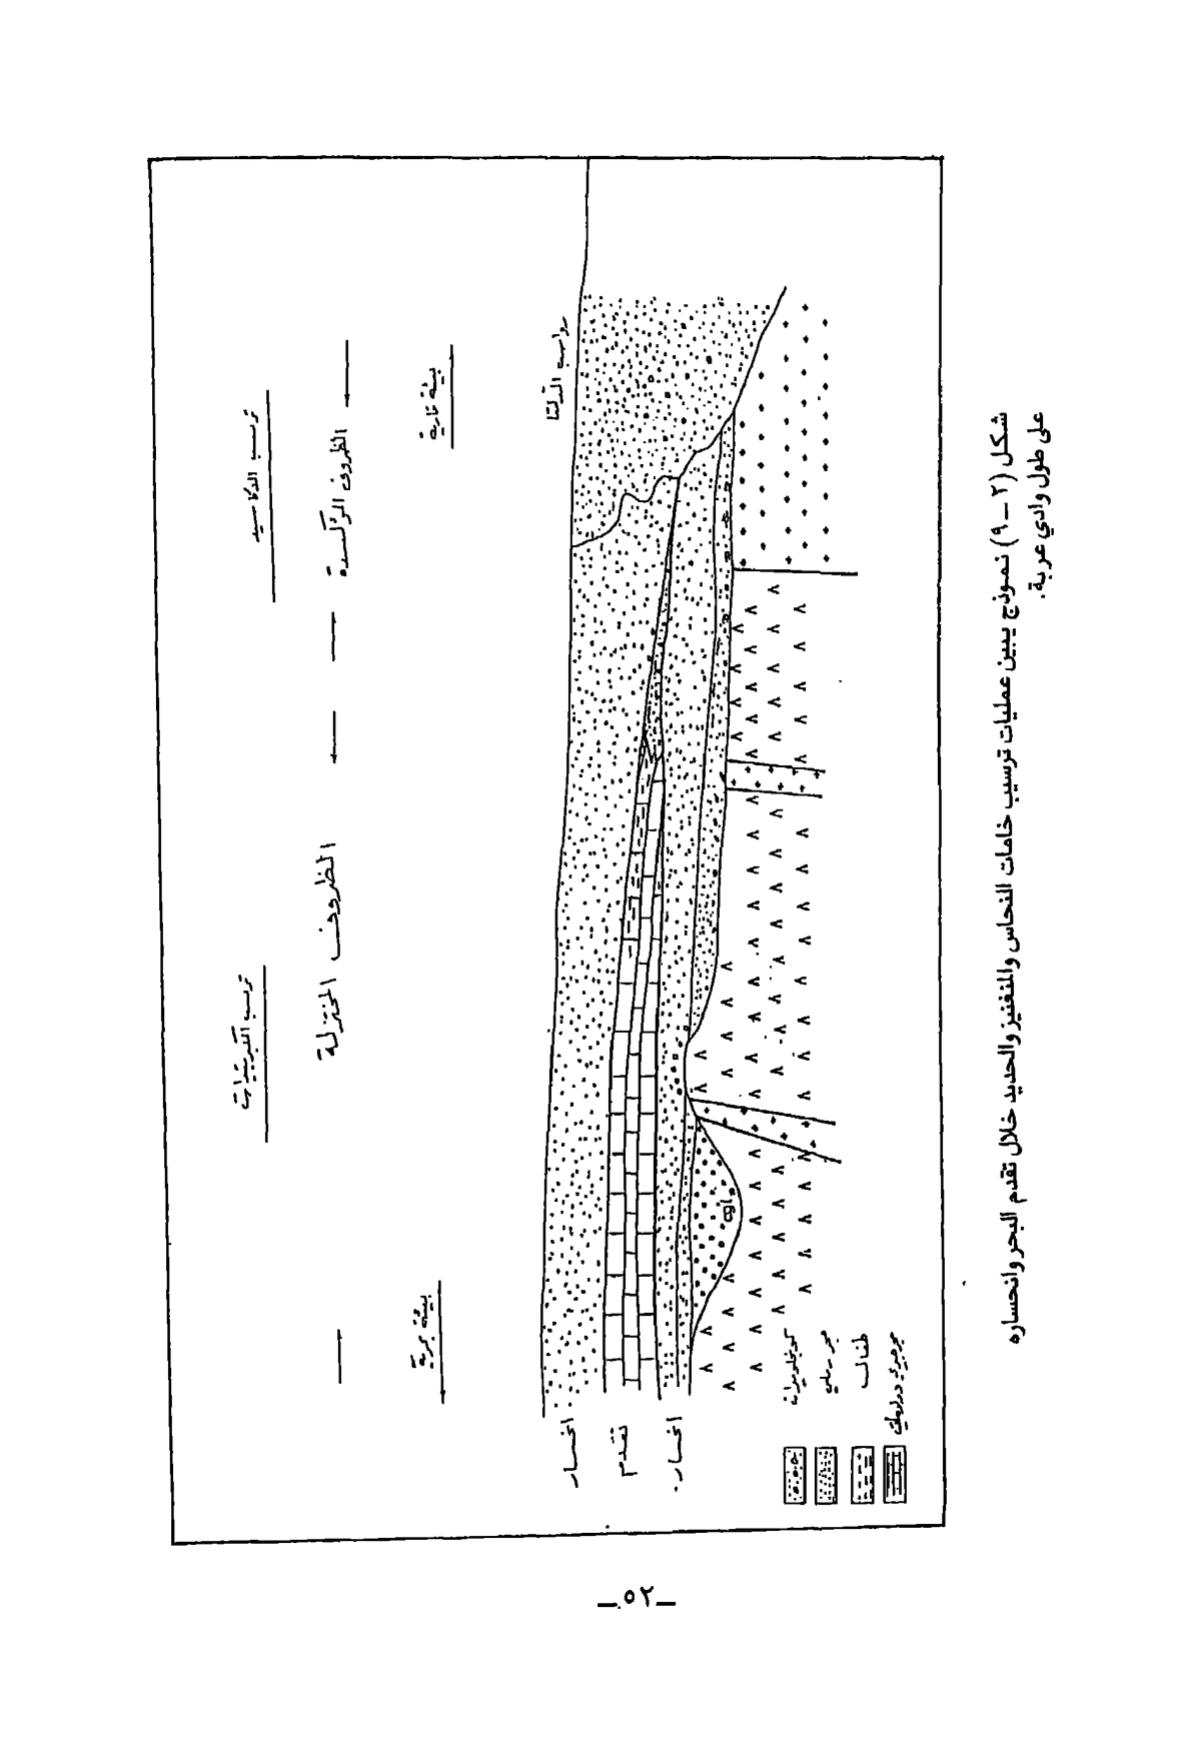 ترسب الكبريتيدات
ترسب الاكاسيد
الظروف المختزلة
الظروف المؤكسدة
بيئة بحرية
بيئة قارية
رواسب الدلتا
انحسار
تقدم
انحسار
كونجلوميرات
حجر رملي
طفال
شكل (٢ - ٩) نموذج يبين عمليات ترسيب خامات النحاس والمنغنيز والحديد خلال تقدم البحر وانحساره
على طول وادي عربة.
-٥٢-